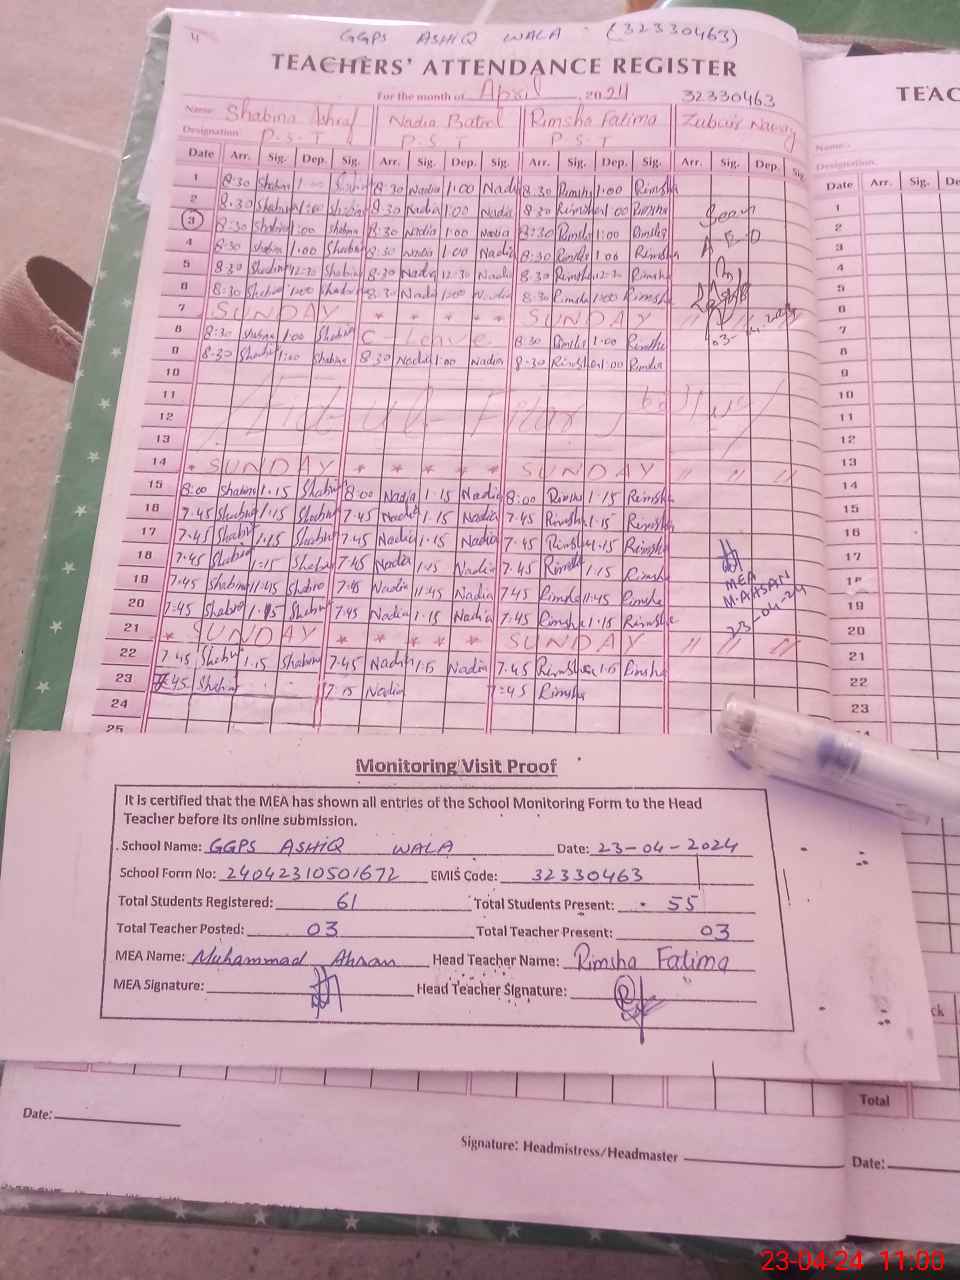 4
GGPS ASHIQ WALA (32330463)
TEACHERS' ATTENDANCE REGISTER
For the month of April, 2024 32330463
Name: Shabina Ashraf Nadia Batool Rimsha Fatima Zubair Nawaz
Designation: P.S.T P.S.T P.S.T
Date Arr. Sig. Dep. Sig. Arr. Sig. Dep. Sig. Arr. Sig. Dep. Sig. Arr. Sig. Dep. Sig.
1 8:30 Shabina 1:00 Shabina 8:30 Nadia 1:00 Nadia 8:30 Rimsha 1:00 Rimsha
2 8:30 Shabina 1:00 Shabina 8:30 Nadia 1:00 Nadia 8:30 Rimsha 1:00 Rimsha
3 8:30 Shabina 1:00 Shabina 8:30 Nadia 1:00 Nadia 8:30 Rimsha 1:00 Rimsha
Seen
4 8:30 Shabina 1:00 Shabina 8:30 Nadia 1:00 Nadia 8:30 Rimsha 1:00 Rimsha
5 8:30 Shabina 12:30 Shabina 8:30 Nadia 12:30 Nadia 8:30 Rimsha 12:30 Rimsha
6 8:30 Shabina 1:00 Shabina 8:30 Nadia 1:00 Nadia 8:30 Rimsha 1:00 Rimsha
7 SUNDAY * * * * SUNDAY // //
8 8:30 Shabina 1:00 Shabina C-Leave 8:30 Rimsha 1:00 Rimsha
9 8:30 Shabina 1:00 Shabina 8:30 Nadia 1:00 Nadia 8:30 Rimsha 1:00 Rimsha
10
11 Eid-ul-Fitar
12
13
14 * SUNDAY * * * * SUNDAY // // //
15 8:00 Shabina 1.15 Shabina 8:00 Nadia 1.15 Nadia 8:00 Rimsha 1.15 Rimsha
16 7.45 Shabina 1.15 Shabina 7.45 Nadia 1.15 Nadia 7.45 Rimsha 1.15 Rimsha
17 7.45 Shabina 1.15 Shabina 7.45 Nadia 1.15 Nadia 7.45 Rimsha 1.15 Rimsha
18 7.45 Shabina 1.15 Shabina 7.45 Nadia 1.15 Nadia 7.45 Rimsha 1.15 Rimsha
19 7.45 Shabina 11:45 Shabina 7.45 Nadia 11.45 Nadia 7.45 Rimsha 11:45 Rimsha
20 7.45 Shabina 1.15 Shabina 7.45 Nadia 1.15 Nadia 7.45 Rimsha 1.15 Rimsha
MEA
M.AHSAN
23-04-24
21 * SUNDAY * * * * SUNDAY // // //
22 7.45 Shabina 1.15 Shabina 7.45 Nadia 1.15 Nadia 7.45 Rimsha 1.15 Rimsha
23 7.45 Shabina 7:15 Nadia 7:45 Rimsha
24
25
Monitoring Visit Proof
It is certified that the MEA has shown all entries of the School Monitoring Form to the Head
Teacher before its online submission.
School Name: GGPS ASHIQ WALA Date: 23-04-2024
School Form No: 24042310501672 EMIS Code: 32330463
Total Students Registered: 61 Total Students Present: 55
Total Teacher Posted: 03 Total Teacher Present: 03
MEA Name: Muhammad Ahsan Head Teacher Name: Rimsha Fatima
MEA Signature: Head Teacher Signature:
Date:
Signature: Headmistress/Headmaster
TEAC
Name:
Designation:
Date Arr. Sig. De
1
2
3
4
5
6
7
8
9
10
11
12
13
14
15
16
17
18
19
20
21
22
23
ck
Total
Date:
23-04-24 11:00